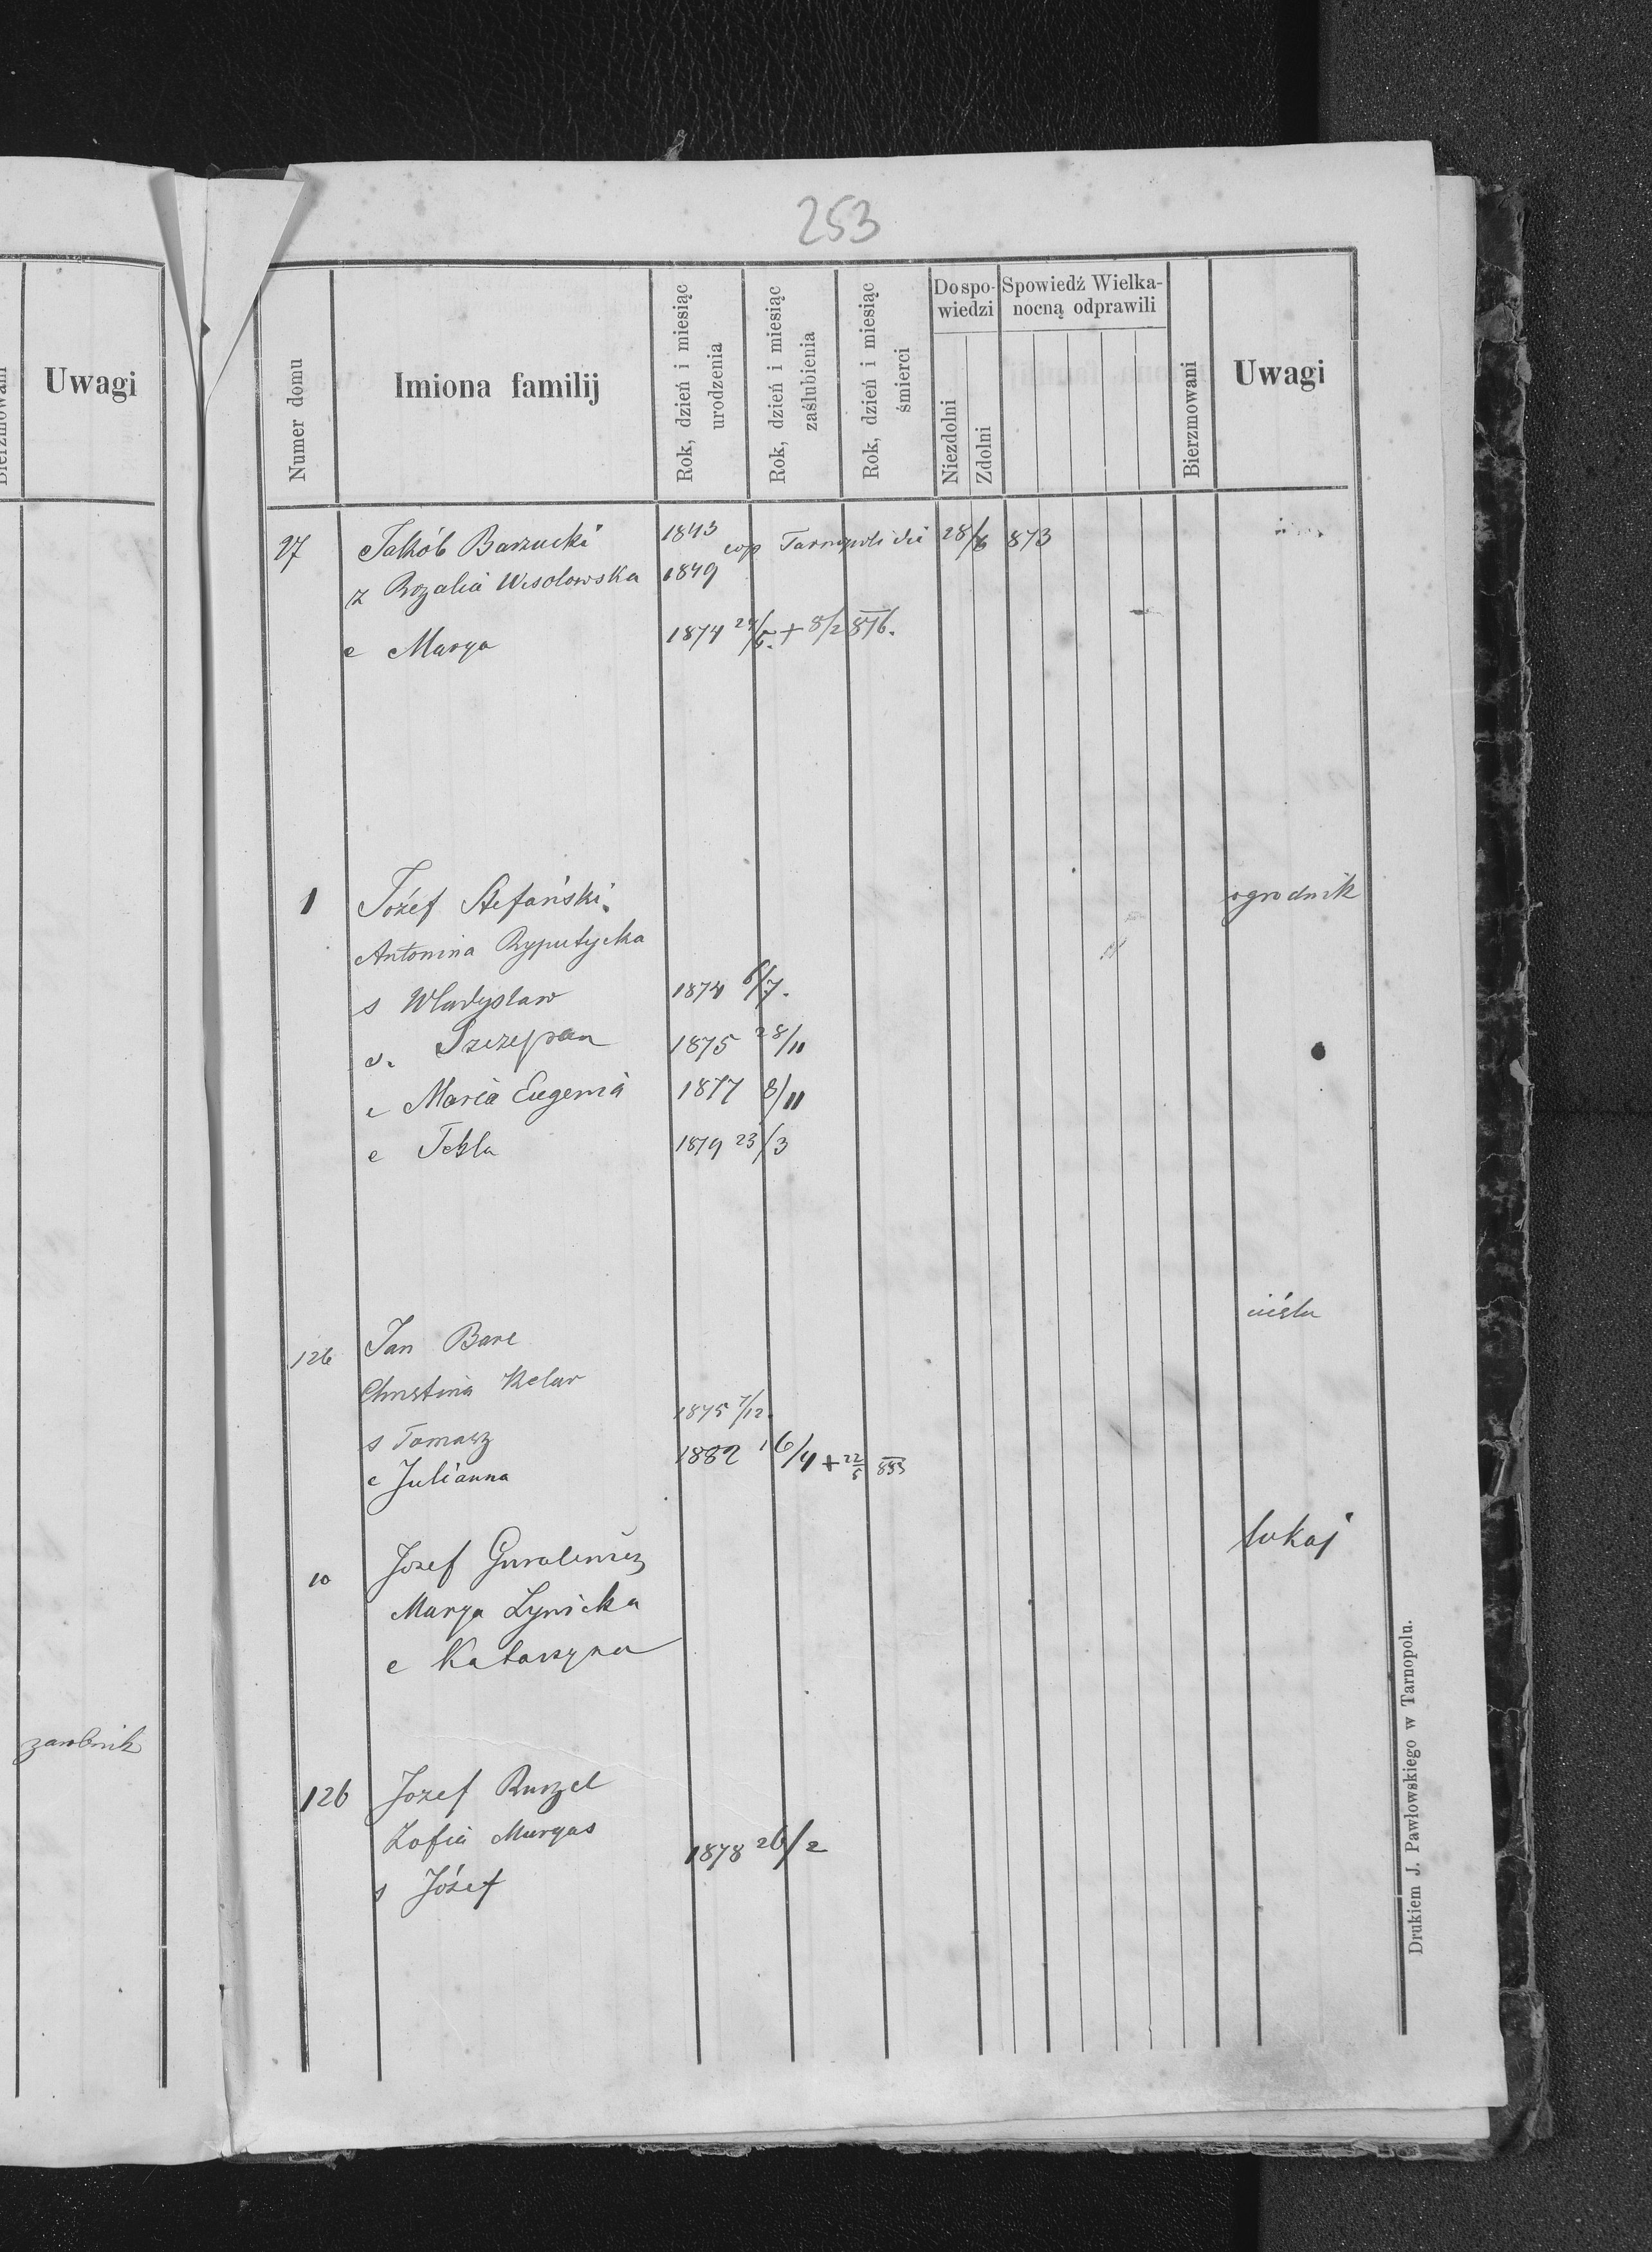 253
Uwagi
Numer domu
Imiona familij
Rok, dzień i miesiąc urodzenia
Rok, dzień i miesiąc zaślubienia
Rok, dzień i miesiąc śmierci
Do spowiedzi
Niezdolni
Zdolni
Spowiedź Wielkanocną odprawili
Bierzmowani
Uwagi
27 Jakób Barzucki 1843 cop 28/6 873
ż Rozalia Wesolowska 1849
c Marya 1874 24/5. + 8/2 876.
1 Józef Stefański ogrodnik
Antonina Ryputycka
s Wladyslaw 1874 6/7.
s. Szczepan 1875 28/11
c Maria Eugenia 1877 8/11
c Tekla 1879 23/3
126 Jan Barc cieśla
Christina
s Tomasz 1875 7/12.
c Julianna 1882 16/4 + 22/5 883
10 Jozef lokaj
Marya
c Katarzyna
zarobnik
126 Jozef Ruszel
Zofia Murgas
s Józef 1878 26/2
Drukiem J. Pawłowskiego w Tarnopolu.